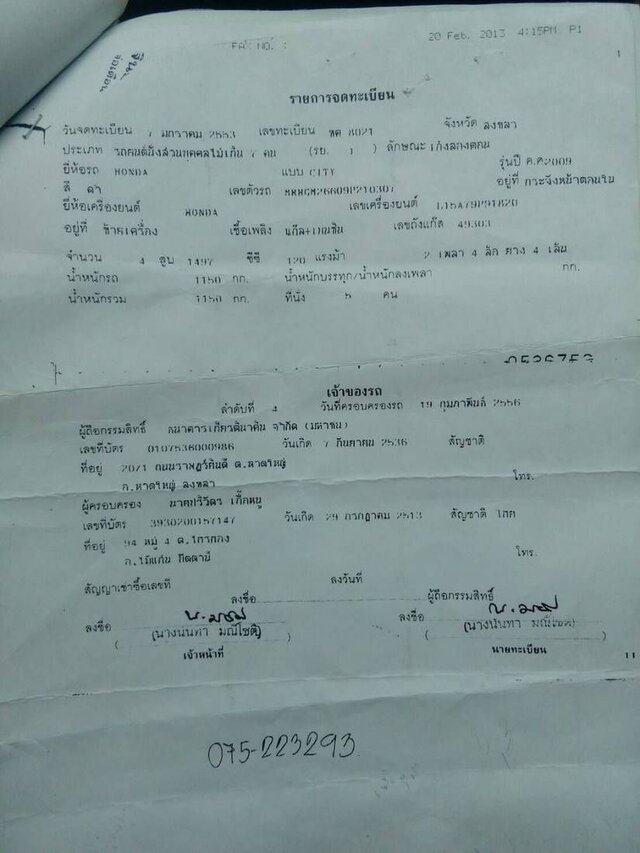 FAX NO. :
20 Feb. 2013 4:15PM P1
1
รายการจดทะเบียน
วันจดทะเบียน 7 มกราคม 2553 เลขทะเบียน 8021 จังหวัด สงขลา
ประเภท รถยนต์นั่งส่วนบุคคลไม่เกิน 7 คน (รย. 1 ) ลักษณะ เก๋งสองตอน
ยี่ห้อรถ HONDA แบบ CITY รุ่นปี ค.ศ2009
สี ดำ เลขตัวรถ MRHGM26609P210307 อยู่ที่ กระจังหน้าตอนใน
ยี่ห้อเครื่องยนต์ HONDA เลขเครื่องยนต์ L15A79P91820
อยู่ที่ ซ้ายเครื่อง เชื้อเพลิง แก๊ส+เบนซิน เลขถังแก๊ส 49303
จำนวน 4 สูบ 1497 ซีซี 120 แรงม้า 2 เพลา 4 ล้อ ยาง 4 เส้น
น้ำหนักรถ 1150 กก. น้ำหนักบรรทุก/น้ำหนักลงเพลา กก.
น้ำหนักรวม 1150 กก. ที่นั่ง 5 คน
เจ้าของรถ
ลำดับที่ 4 วันที่ครอบครองรถ 19 กุมภาพันธ์ 2556
ผู้ถือกรรมสิทธิ์ ธนาคารเกียรตินาคิน จำกัด (มหาชน)
เลขที่บัตร 0107536000986 วันเกิด 7 กันยายน 2536 สัญชาติ
ที่อยู่ 20/1 ถนนราษฎร์ยินดี ต.หาดใหญ่
อ.หาดใหญ่ สงขลา โทร.
ผู้ครอบครอง
เลขที่บัตร 3930200157147 วันเกิด 29 กรกฎาคม 2513 สัญชาติ ไทย
ที่อยู่ 94 หมู่ 4 ต.ไทรทอง
อ.ไม้แก่น ปัตตานี โทร.
สัญญาเช่าซื้อเลขที่ ลงวันที่
ลงชื่อ ผู้ถือกรรมสิทธิ์
ลงชื่อ ลงชื่อ
(นางนันทา มณีโชติ) (นางนันทา มณีโชติ)
เจ้าหน้าที่ นายทะเบียน
11
075-223293